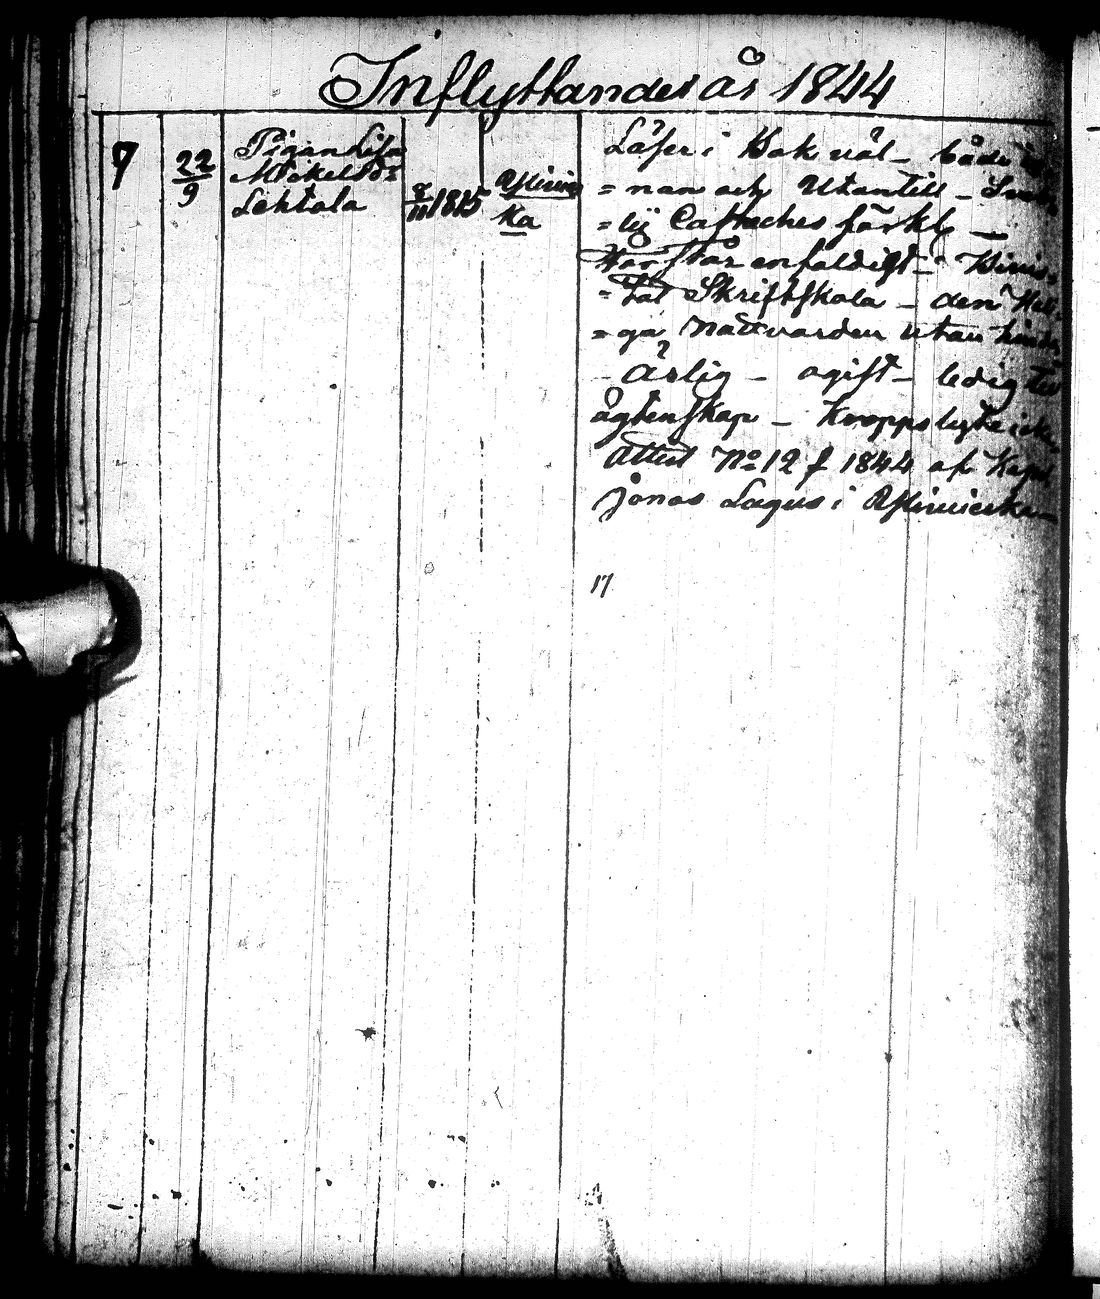 Inflyttandes år 1844
7
22
9
Pigan Lisa
Mickelsdr
Lehtola
2
11 1815
Yliwies
ka
Läser i Bok wäl – både in
= nan och Utantill – Swebi
= lij Catheches förkl –
Förstår enfaldigt – Biwis-
= tat Skriftskola – den Heli
= ga Nattvarden utan hinder
– Ärlig – ogift – ledig til
ägtenskap – Kroppslyte icke
Attest No 12 f 1844 af Kapl
Jonas Lagus i Yliwieska –
17